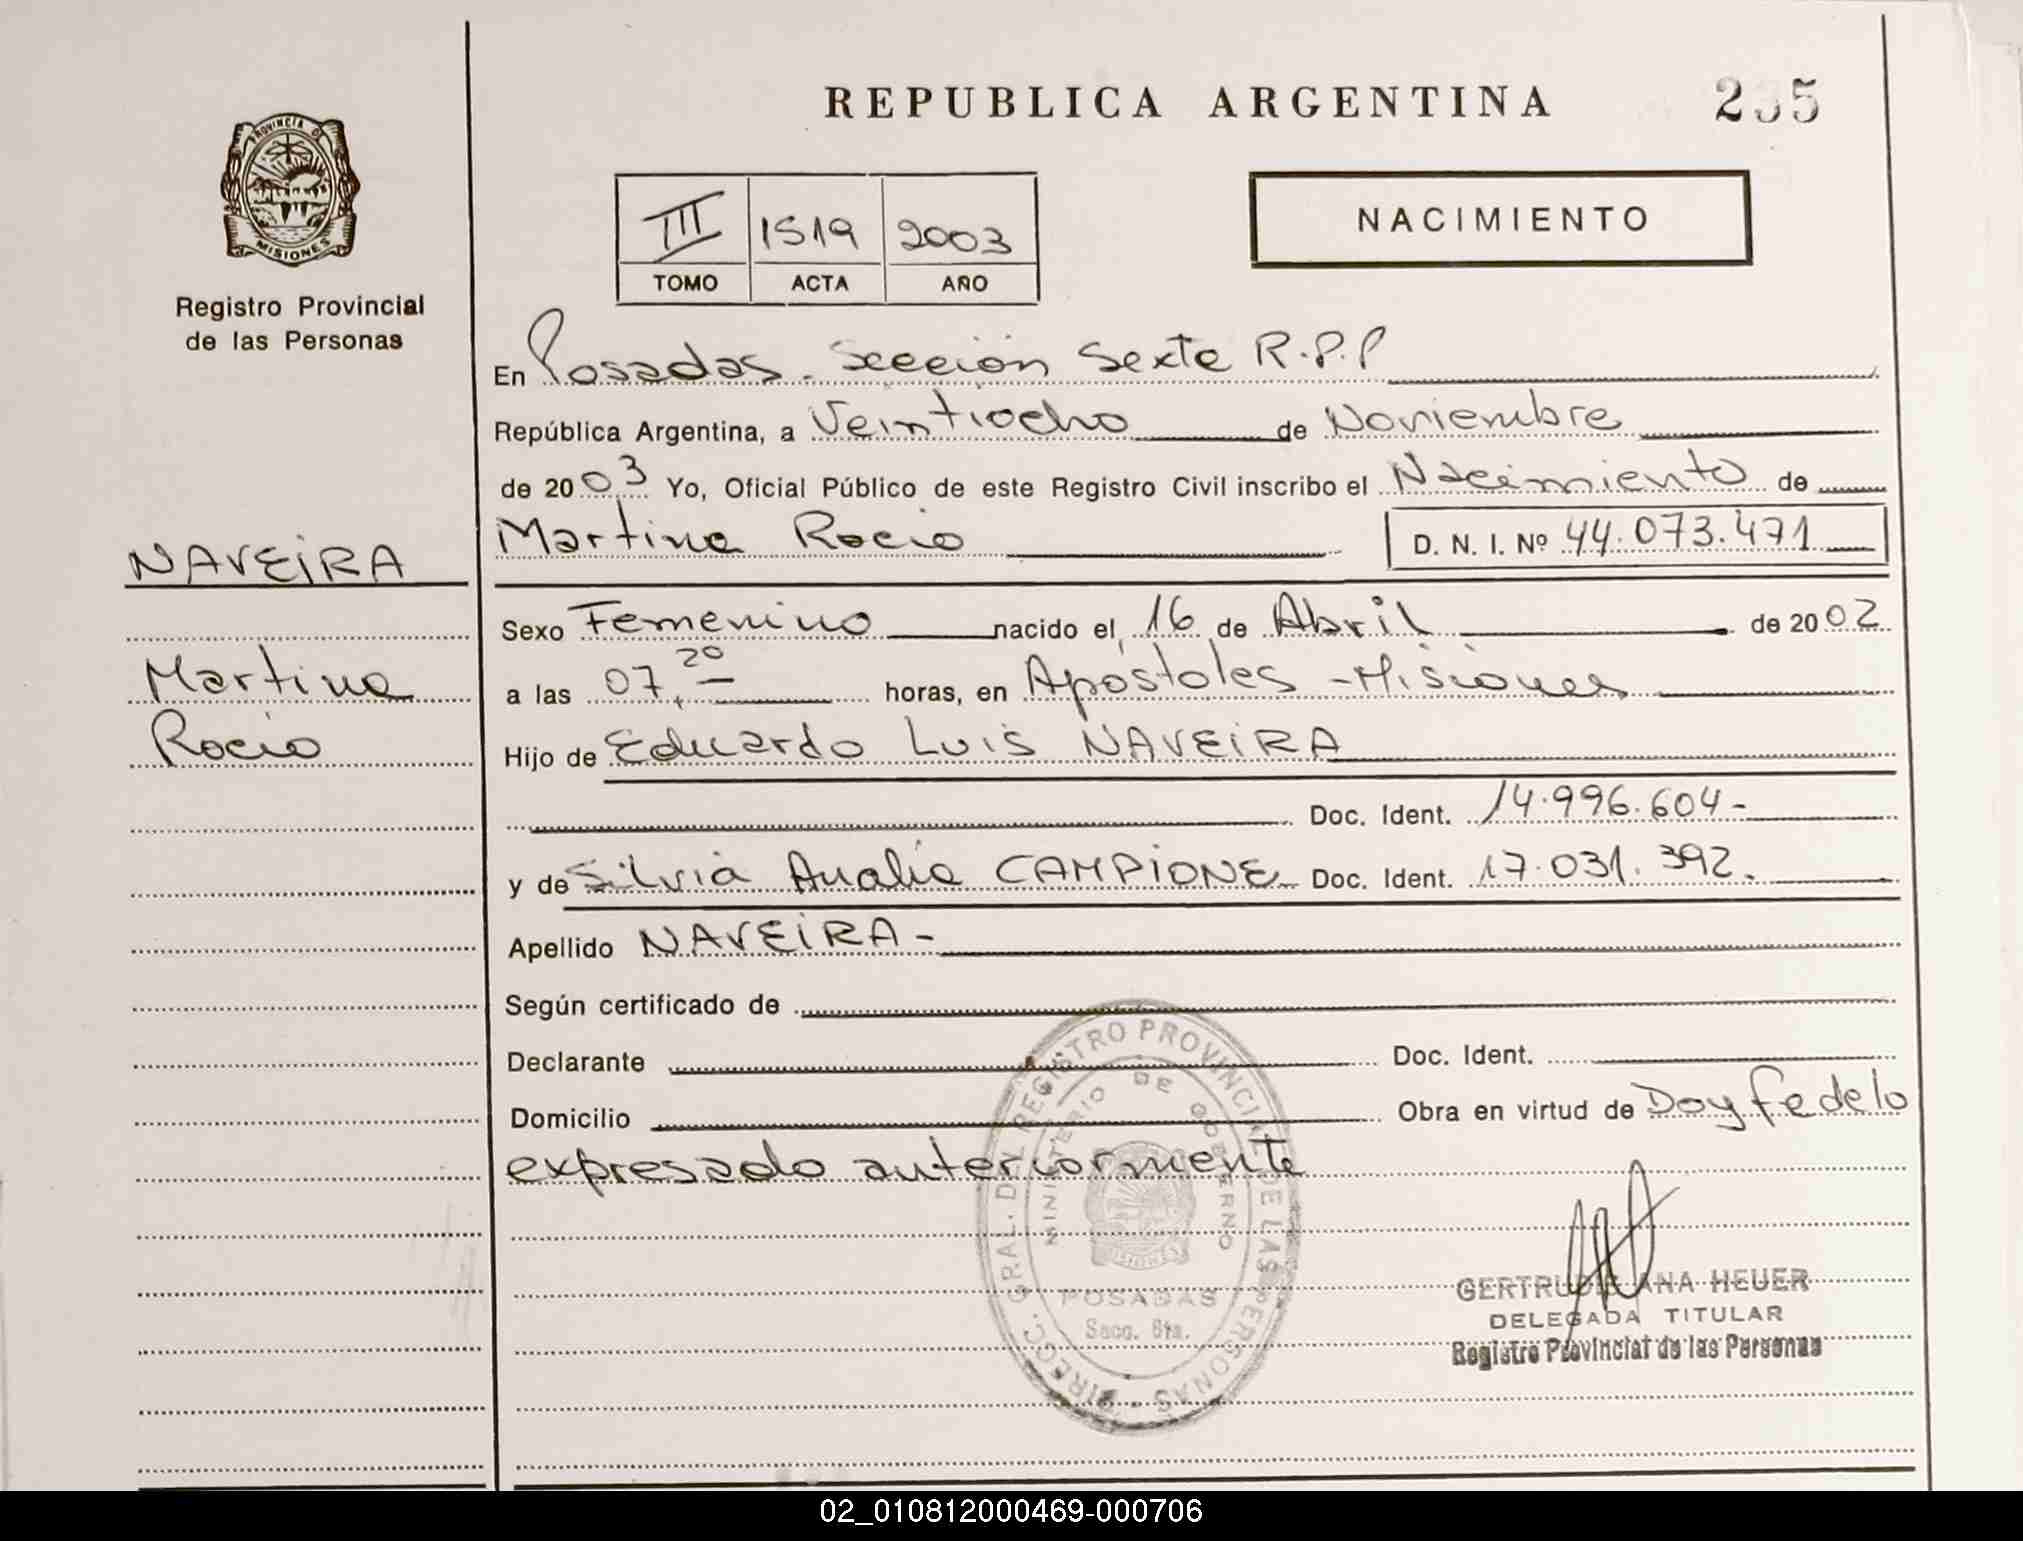 REPUBLICA ARGENTINA
235
PROVINCIA DE
MISIONES
Registro Provincial
de las Personas
III 1519 2003
TOMO ACTA AÑO
NACIMIENTO
En Posadas. Sección Sexta R.P.P
República Argentina, a Veintiocho de Noviembre
de 2003 Yo, Oficial Público de este Registro Civil inscribo el Nacimiento de
Martina Rocio D. N. I. Nº 44.073.471
NAVEIRA
Martina
Rocio
Sexo Femenino nacido el 16 de Abril de 2002
a las 07,20 horas, en Apóstoles - Misiones
Hijo de Eduardo Luis NAVEIRA
Doc. Ident. 14.996.604-
y de Silvia Analia CAMPIONE Doc. Ident. 17.031.392.
Apellido NAVEIRA-
Según certificado de
Declarante Doc. Ident.
Domicilio Obra en virtud de Doy fe de lo
expresado anteriormente
DIRECC. GRAL. DEL REGISTRO PROVINCIAL DE LAS PERSONAS
MINISTERIO DE GOBIERNO
MISIONES
POSADAS
Secc. 6ta.
GERTRUDIS ANA HEUER
DELEGADA TITULAR
Registro Provincial de las Personas
02_010812000469-000706